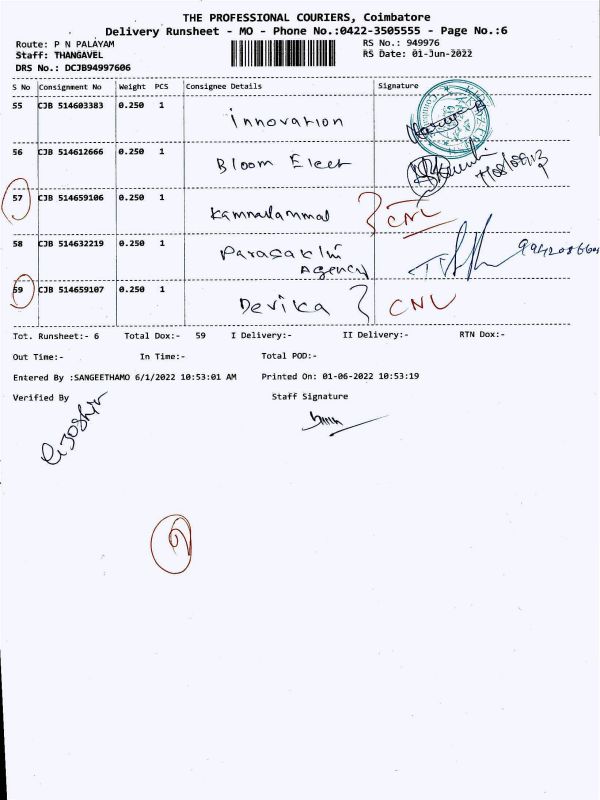 THE PROFESSIONAL COURIERS, Coimbatore
Delivery Runsheet - MO - Phone No.:0422-3505555 - Page No.:6
Route: P N PALAYAM RS No.: 949976
Staff: THANGAVEL RS Date: 01-Jun-2022
DRS No.: DCJB94997606
S No Consignment No Weight PCS Consignee Details Signature
55 CJB 514603383 0.250 1 innovation
56 CJB 514612666 0.250 1 Bloom Elect
57 CJB 514659106 0.250 1 CNL
58 CJB 514632219 0.250 1 Agency
59 CJB 514659107 0.250 1 Devika CNL
Tot. Runsheet:- 6 Total Dox:- 59 I Delivery:- II Delivery:- RTN Dox:-
Out Time:- In Time:- Total POD:-
Entered By :SANGEETHAMO 6/1/2022 10:53:01 AM Printed On: 01-06-2022 10:53:19
Verified By Staff Signature